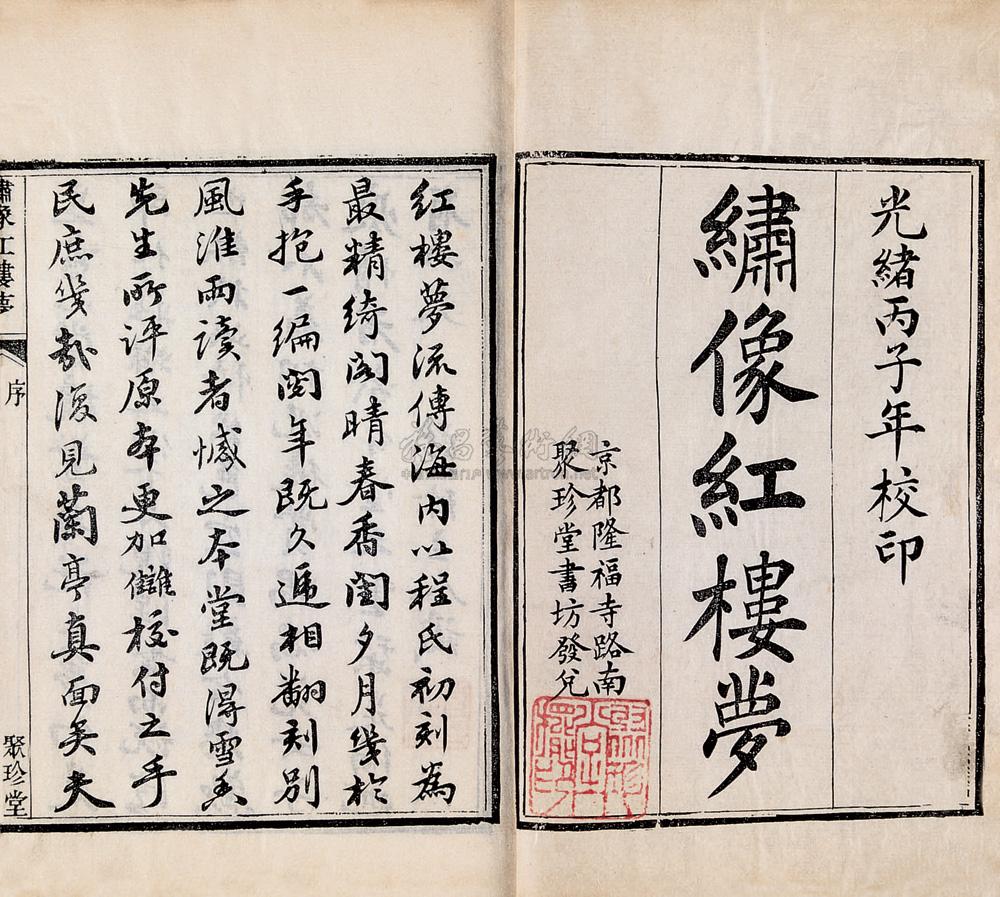 光緒丙子年校印
繡像紅樓夢
京都隆福寺路南
聚珍堂書坊發兌
紅樓夢流傳海内以程氏初刻為
最精綺閣晴春香閨夕月幾於
手抱一編閱年既久遞相翻刻別
風淮雨讀者憾之本堂既得雪香
先生所評原本更加讎校付之手
民庶幾哉復見蘭亭真面矣夫
繡像紅樓夢
序
聚珍堂